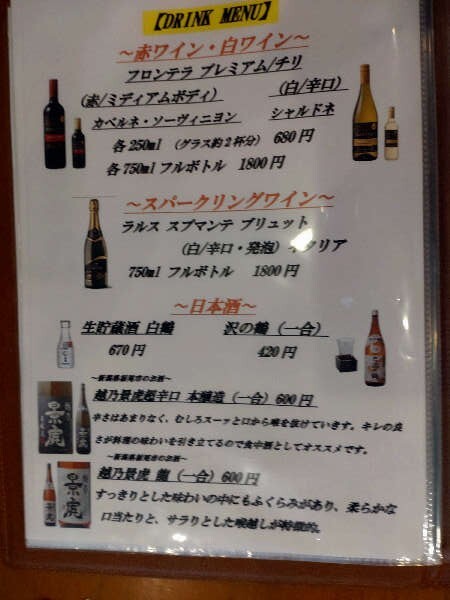 【DRINK MENU】
～赤ワイン・白ワイン～
フロンテラ プレミアム/チリ
(赤/ミディアムボディ) (白/辛口)
カベルネ・ソーヴィニヨン シャルドネ
各250ml (グラス約2杯分) 680円
各750ml フルボトル 1800円
～スパークリングワイン～
ラルス スプマンテ ブリュット
(白/辛口・発泡) イタリア
750ml フルボトル 1800円
～日本酒～
生貯蔵酒 白鶴 沢の鶴 (一合)
670円 420円
～新潟県栃尾市の お酒～
越乃景虎超辛口 本醸造 (一合) 600円
辛さはあまりなく、むしろスーッと口から味を抜けていきす。キレの良
さが料理の味わいを引き立てるので食中酒としてオススメです。
～新潟県栃尾市のお酒～
越乃景虎 龍 (一合) 600円
すっきりとした味わいの中にもふくらみがあり、柔らかな
口当たりと、サラリとした喉越しが特徴的。
景虎
景虎